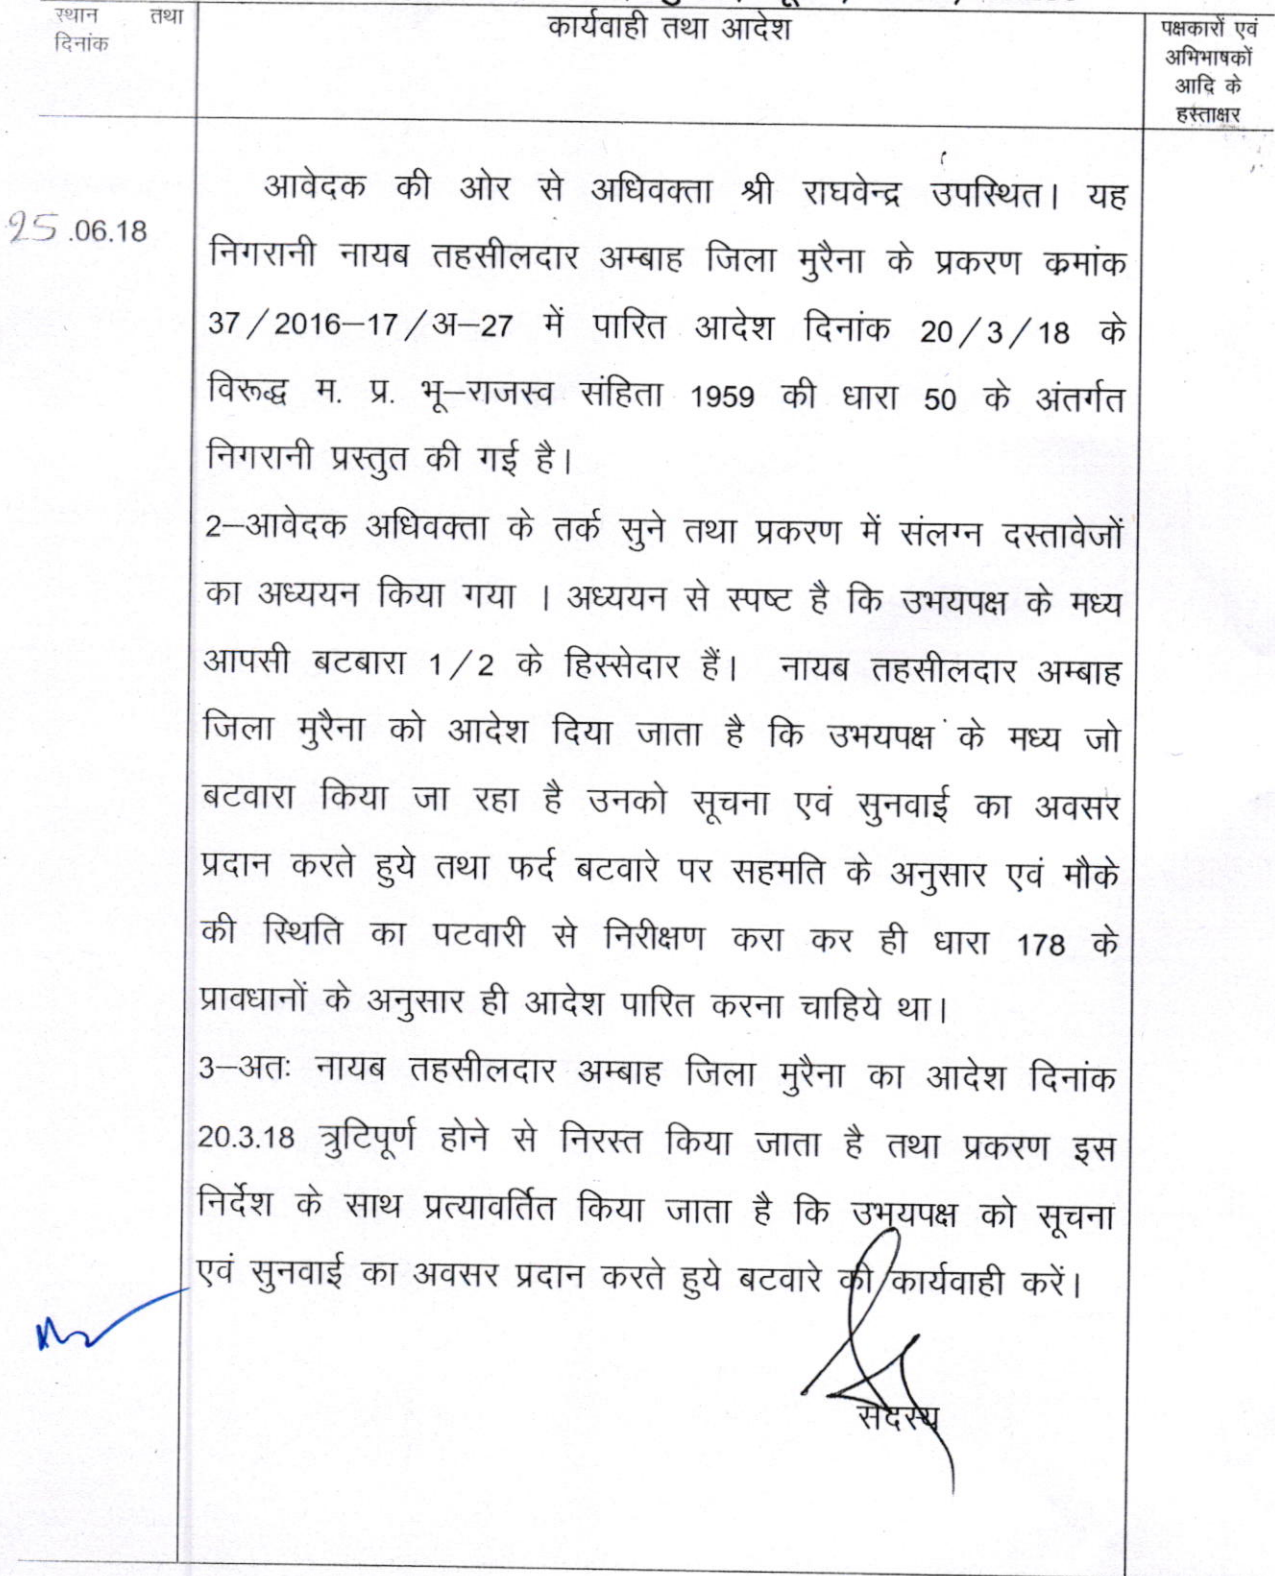 स्थान तथा
दिनांक
कार्यवाही तथा आदेश
पक्षकारों एवं
अभिभाषकों
आदि के
हस्ताक्षर
25.06.18
आवेदक की ओर से अधिवक्ता श्री राघवेन्द्र उपस्थित। यह
निगरानी नायब तहसीलदार अम्बाह जिला मुरैना के प्रकरण कमांक
37/2016–17/अ–27 में पारित आदेश दिनांक 20/3/18 के
विरूद्ध म. प्र. भू–राजस्व संहिता 1959 की धारा 50 के अंतर्गत
निगरानी प्रस्तुत की गई है।
2–आवेदक अधिवक्ता के तर्क सुने तथा प्रकरण में संलग्न दस्तावेजों
का अध्ययन किया गया । अध्ययन से स्पष्ट है कि उभयपक्ष के मध्य
आपसी बटबारा 1/2 के हिस्सेदार हैं। नायब तहसीलदार अम्बाह
जिला मुरैना को आदेश दिया जाता है कि उभयपक्ष के मध्य जो
बटवारा किया जा रहा है उनको सूचना एवं सुनवाई का अवसर
प्रदान करते हुये तथा फर्द बटवारे पर सहमति के अनुसार एवं मौके
की स्थिति का पटवारी से निरीक्षण करा कर ही धारा 178 के
प्रावधानों के अनुसार ही आदेश पारित करना चाहिये था।
3–अतः नायब तहसीलदार अम्बाह जिला मुरैना का आदेश दिनांक
20.3.18 त्रुटिपूर्ण होने से निरस्त किया जाता है तथा प्रकरण इस
निर्देश के साथ प्रत्यावर्तित किया जाता है कि उभयपक्ष को सूचना
एवं सुनवाई का अवसर प्रदान करते हुये बटवारे की कार्यवाही करें।
सदस्य